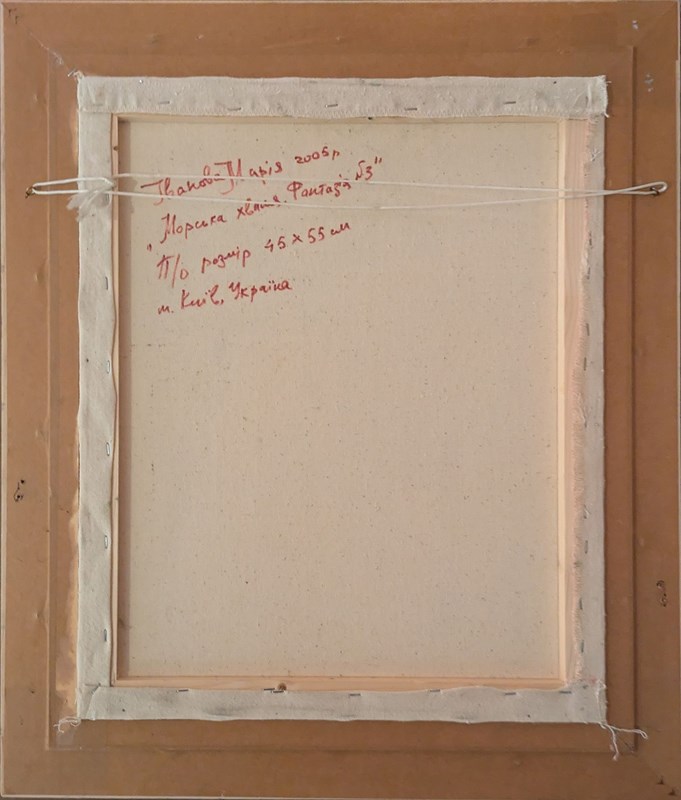 Іванова Марія 2005р
"Морська хвиля. Фантазія №3"
П/о розмір 45 х 55 см
м. Київ, Україна